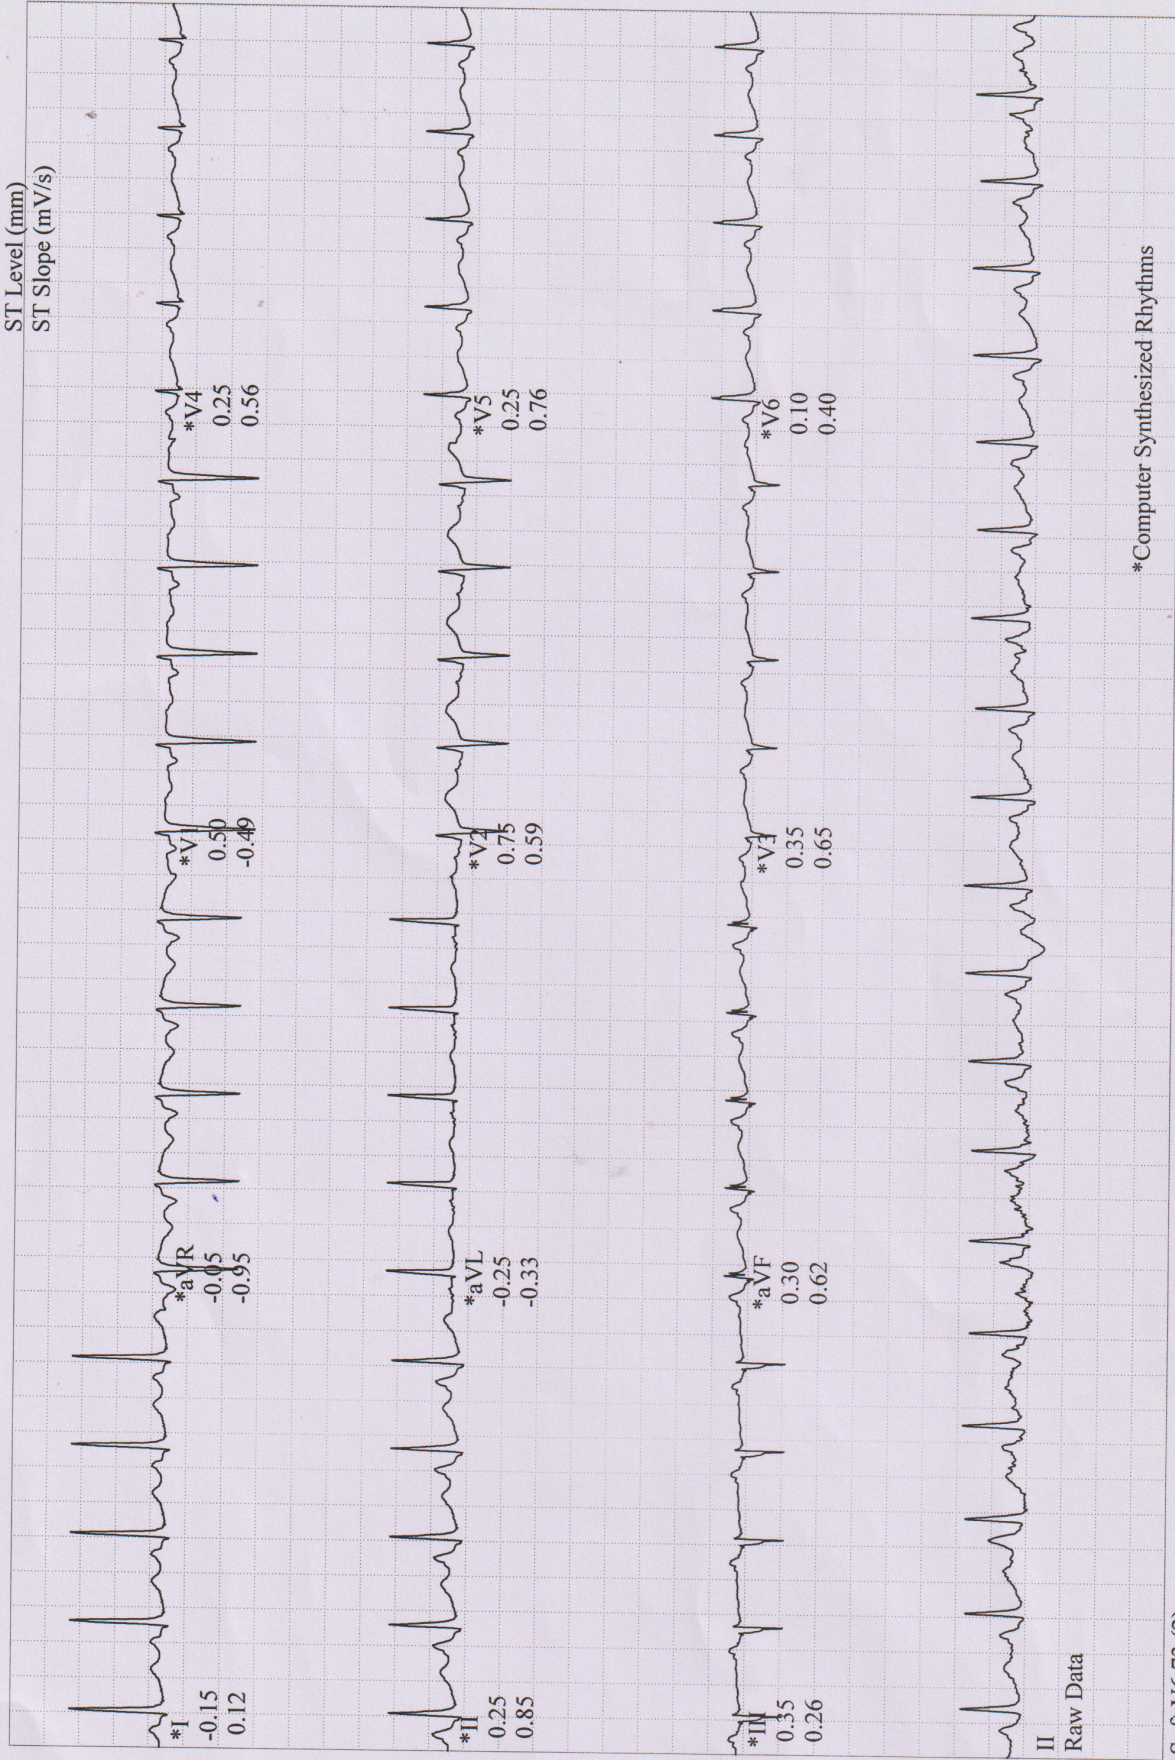 ST Level (mm)
ST Slope (mV/s)
*I
-0.15
0.12
*aVR
-0.05
-0.95
*V1
0.50
-0.49
*V4
0.25
0.56
*II
0.25
0.85
*aVL
-0.25
-0.33
*V2
0.75
0.59
*V5
0.25
0.76
*III
0.35
0.26
*aVF
0.30
0.62
*V3
0.35
0.65
*V6
0.10
0.40
II
Raw Data
*Computer Synthesized Rhythms